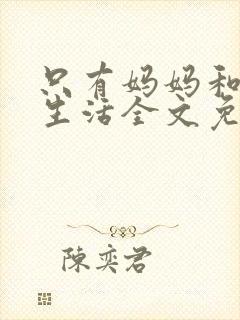 只有妈妈和
生活全文免
陳奕君